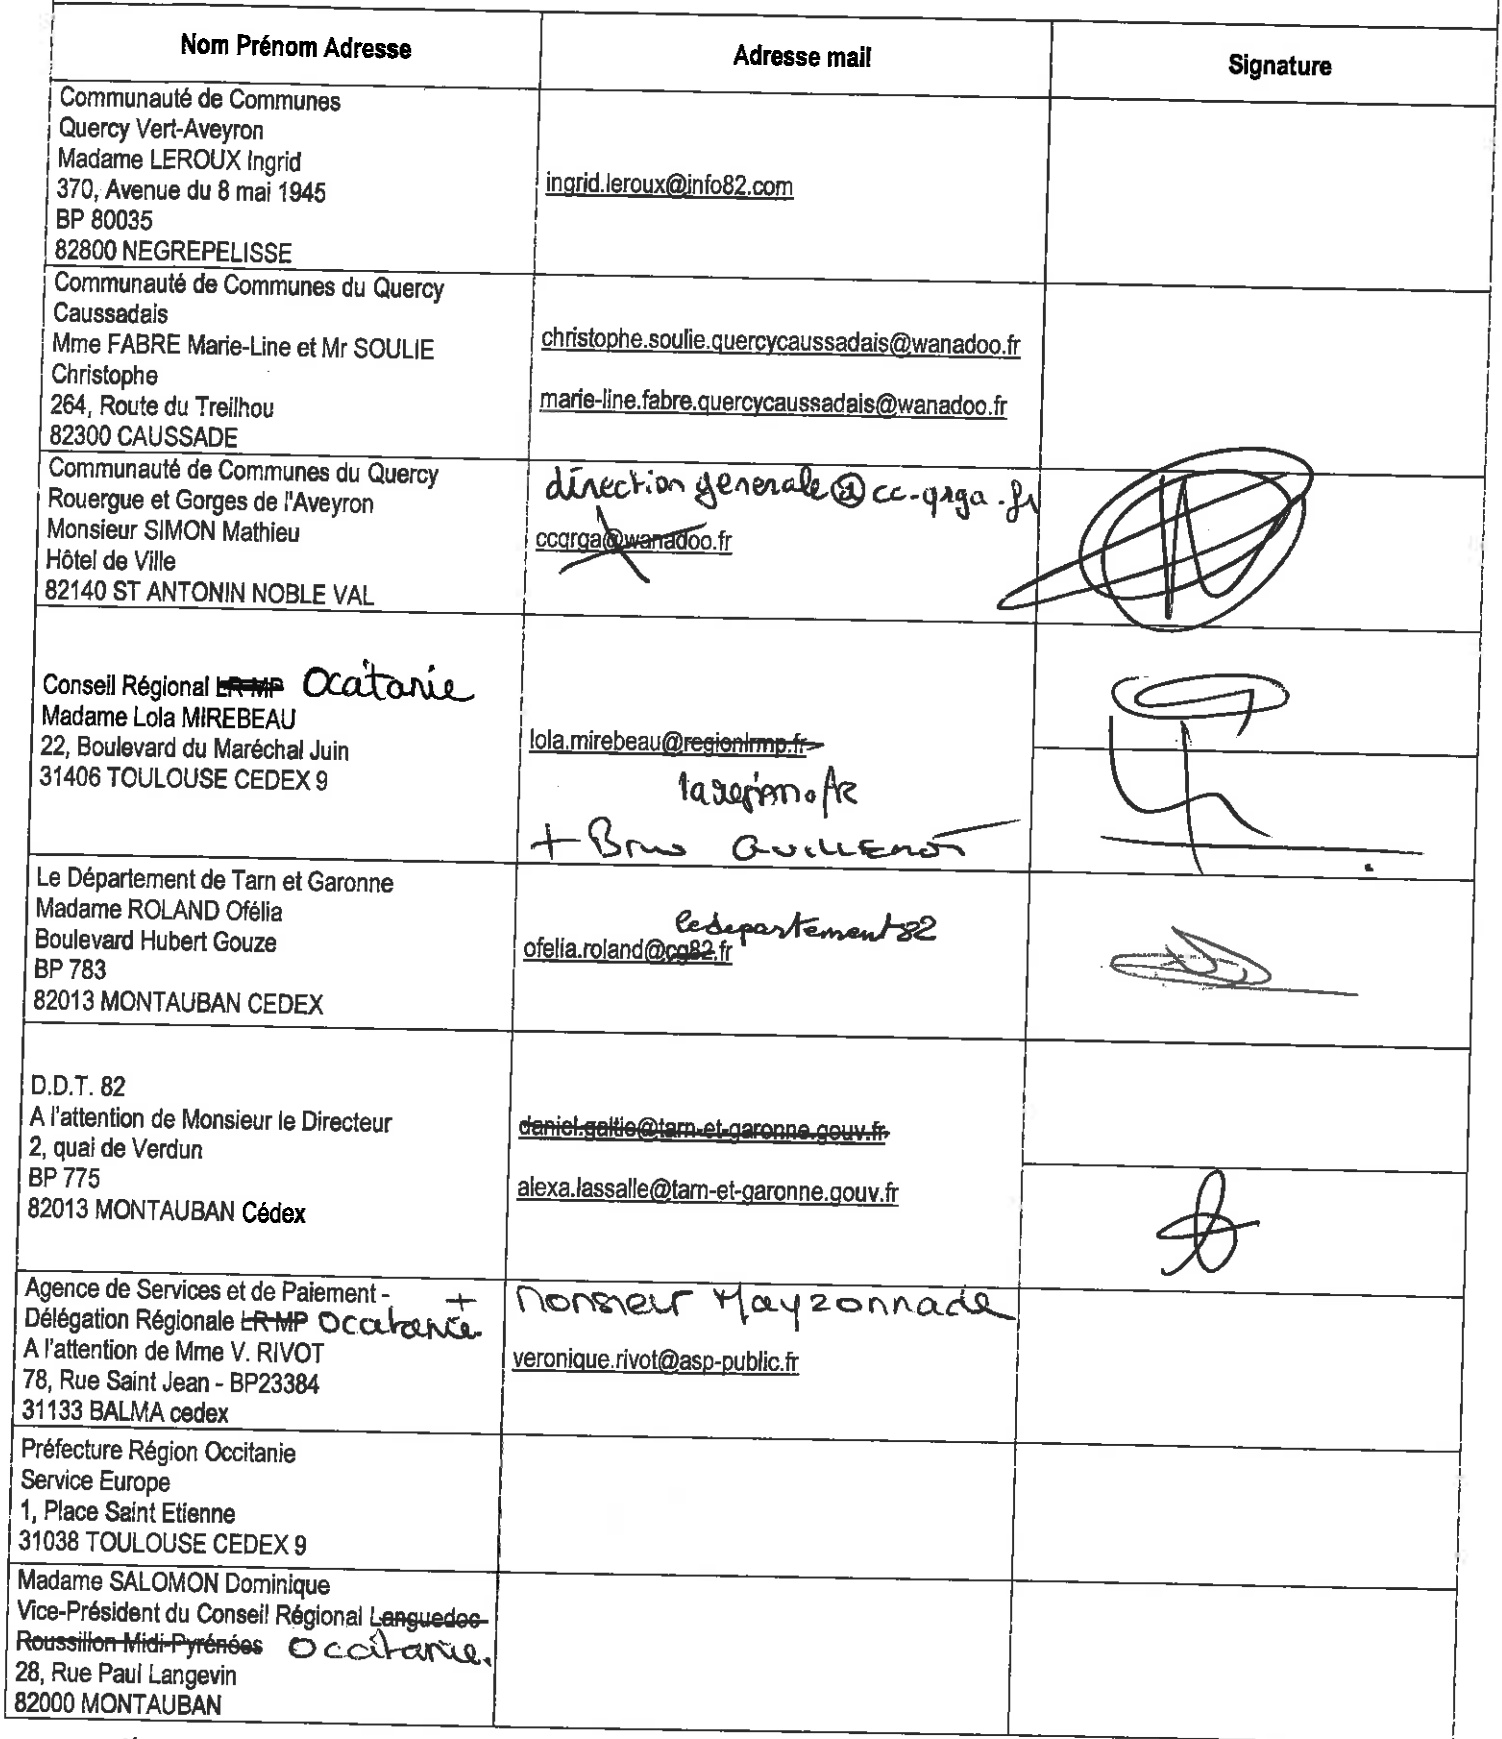 Nom Prénom Adresse
Adresse mail
Signature
Communauté de Communes
Quercy Vert-Aveyron
Madame LEROUX Ingrid
370, Avenue du 8 mai 1945
BP 80035
82800 NEGREPELISSE
ingrid.leroux@info82.com
Communauté de Communes du Quercy
Caussadais
Mme FABRE Marie-Line et Mr SOULIE
Christophe
264, Route du Treilhou
82300 CAUSSADE
christophe.soulie.quercycaussadais@wanadoo.fr
marie-line.fabre.quercycaussadais@wanadoo.fr
Communauté de Communes du Quercy
Rouergue et Gorges de l'Aveyron
Monsieur SIMON Mathieu
Hôtel de Ville
82140 ST ANTONIN NOBLE VAL
direction generale@cc-qrga.fr
ccqrga@wanadoo.fr
Conseil Régional LR-MP Occitanie
Madame Lola MIREBEAU
22, Boulevard du Maréchal Juin
31406 TOULOUSE CEDEX 9
lola.mirebeau@regionlrmp.fr
laregion.fr
+ Bruno
Le Département de Tarn et Garonne
Madame ROLAND Ofélia
Boulevard Hubert Gouze
BP 783
82013 MONTAUBAN CEDEX
ledepartement82
ofelia.roland@cg82.fr
D.D.T. 82
A l'attention de Monsieur le Directeur
2, quai de Verdun
BP 775
82013 MONTAUBAN Cédex
daniel.galtie@tarn-et-garonne.gouv.fr
alexa.lassalle@tarn-et-garonne.gouv.fr
Agence de Services et de Paiement -
Délégation Régionale LR-MP Occitanie
A l'attention de Mme V. RIVOT
78, Rue Saint Jean - BP23384
31133 BALMA cedex
+ Monsieur Mayzonnade
veronique.rivot@asp-public.fr
Préfecture Région Occitanie
Service Europe
1, Place Saint Etienne
31038 TOULOUSE CEDEX 9
Madame SALOMON Dominique
Vice-Président du Conseil Régional Languedoc-
Roussillon Midi-Pyrénées Occitanie.
28, Rue Paul Langevin
82000 MONTAUBAN